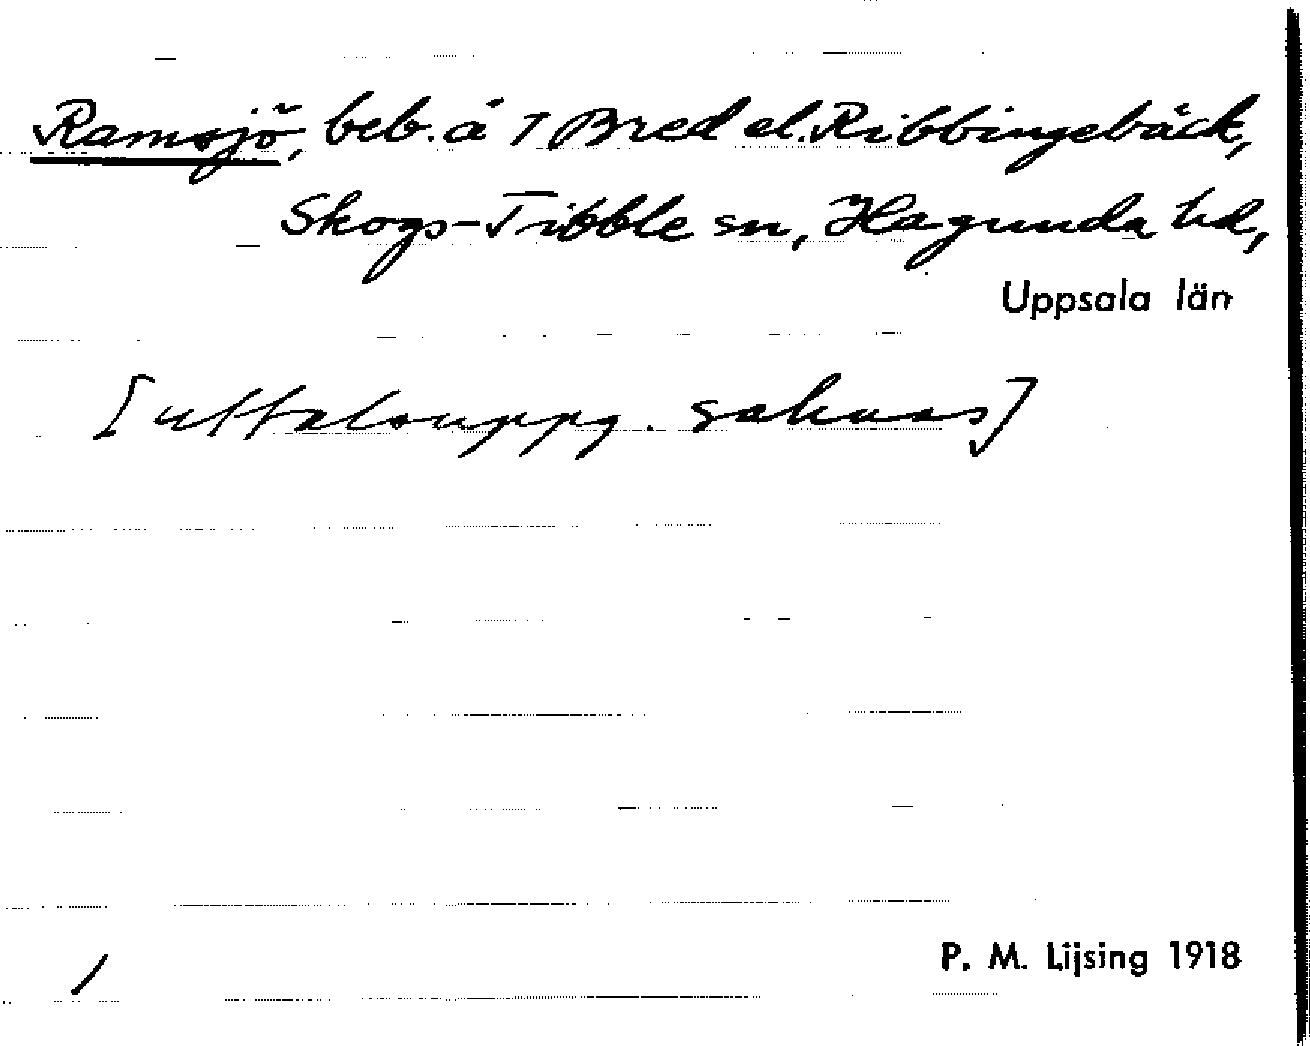 Ramsjö, beb. å 1 Bred el. Ribbingebäck,
Skogs-Tibble sn, Hagunda hd,
Uppsala län
[uttalsuppg. saknas]
P. M. Lijsing 1918